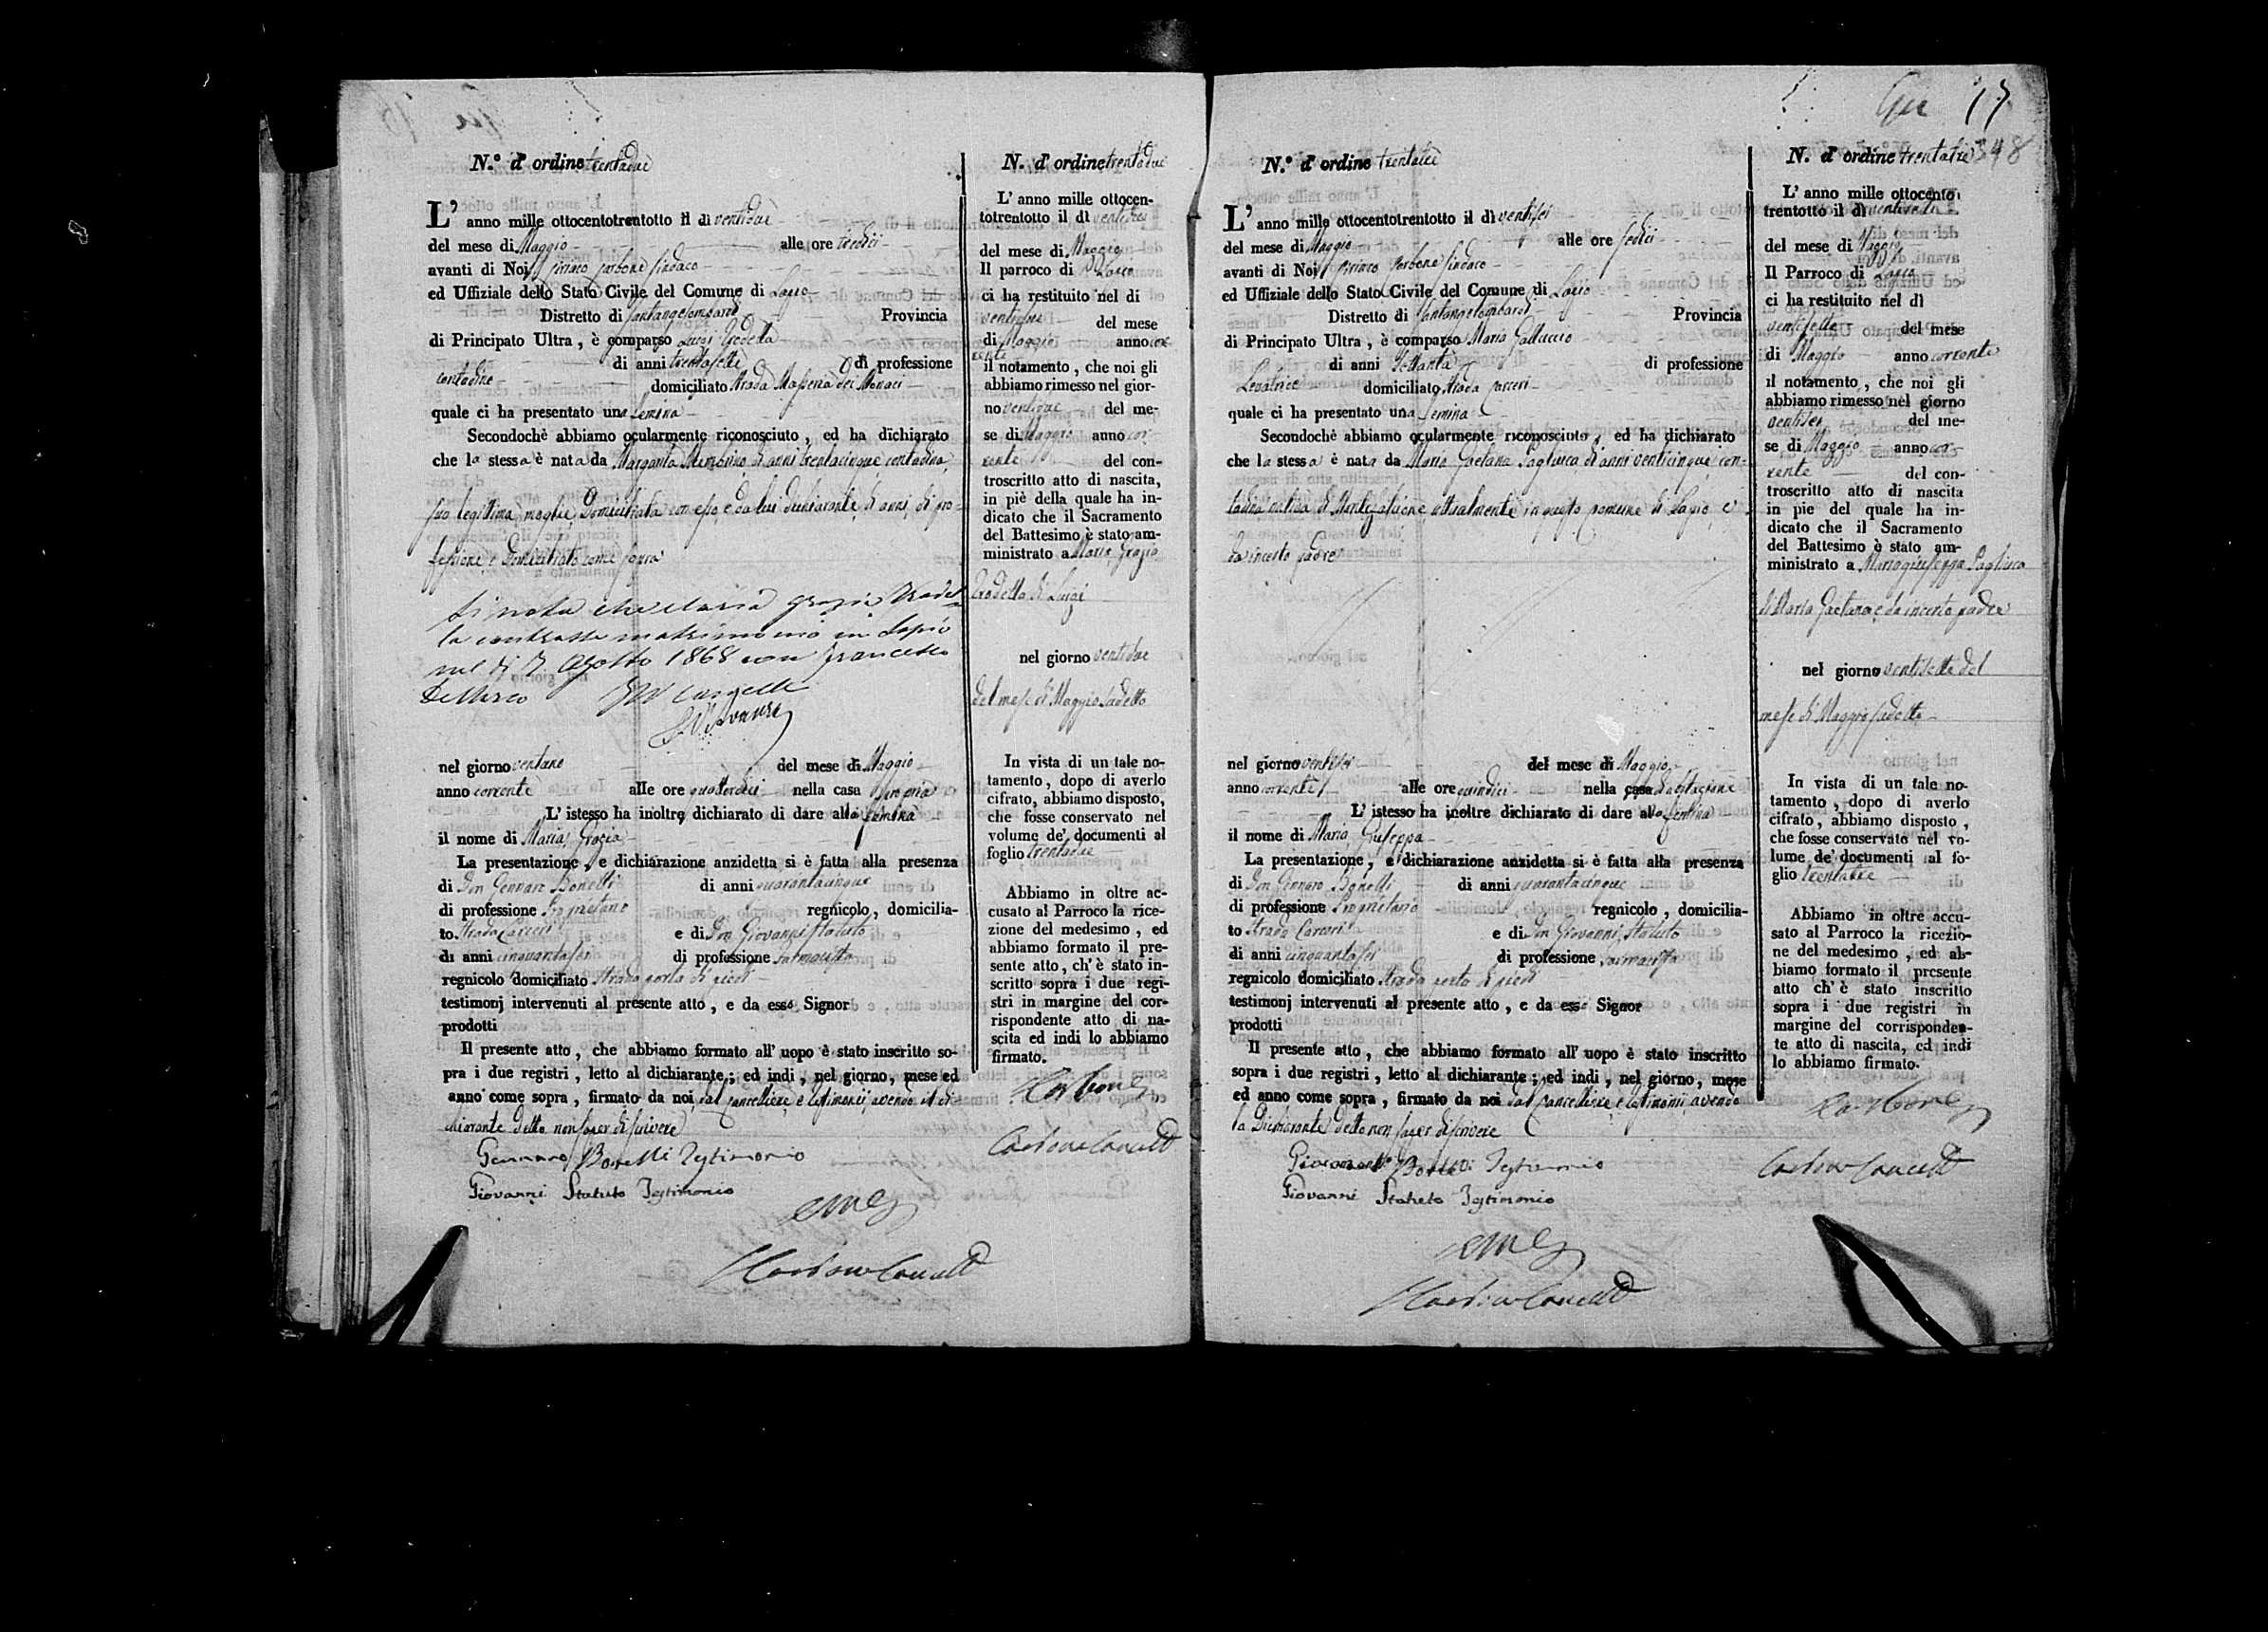 N.º d' ordine trentadue
L' anno mille ottocentotrentotto il dì ventidue
del mese di Maggio alle ore tredici
avanti di Noi Ciriaco Carbone Sindaco
ed Uffiziale dello Stato Civile del Comune di Lapio
Distretto di Santangelombardi Provincia
di Principato Ultra, è comparso Luigi
di anni trentasette di professione
contadino domiciliato strada Masseria dei Monaci
quale ci ha presentato una femina
Secondochè abbiamo ocularmente riconosciuto, ed ha dichiarato
che la stessa è nata da Margarita di anni trentacinque contadina
sua legittima moglie domiciliata con esso, e da lui dichiarante di anni, di pro-
fessione e domiciliato come sopra
Si nota che Maria Grazia
la contrasse matrimonio in Lapio
nel dì 7. Agosto 1868 con Francesco
nel giorno ventuno del mese di Maggio
anno corrente alle ore quattordici nella casa propria
L' istesso ha inoltre dichiarato di dare alla femina
il nome di Maria Grazia
La presentazione, e dichiarazione anzidetta si è fatta alla presenza
di Don Gennaro Bonelli di anni quarantacinque
di professione Proprietario regnicolo, domicilia-
to Strada Carceri e di Don Giovanni Statuto
di anni cinquantasei di professione farmacista
regnicolo domiciliato strada porta di piedi
testimonj intervenuti al presente atto, e da esso Signor
prodotti
Il presente atto, che abbiamo formato all' uopo è stato inscritto so-
pra i due registri, letto al dichiarante; ed indi, nel giorno, mese ed
anno come sopra, firmato da noi, dal Cancelliere e testimonii, avendo il di-
chiarante detto non saper di scrivere
Gennaro Bonelli Testimonio
Giovanni Statuto Testimonio
N. d' ordine trentadue
L' anno mille ottocen-
totrentotto il dì
del mese di Maggio
Il parroco di Lapio
ci ha restituito nel dì
ventidue del mese
di Maggio anno cor-
rente
il notamento, che noi gli
abbiamo rimesso nel gior-
no ventidue del me-
se di Maggio anno cor-
rente del con-
troscritto atto di nascita,
in piè della quale ha in-
dicato che il Sacramento
del Battesimo è stato am-
ministrato a Maria Grazia
di Luigi
nel giorno ventidue
del mese di Maggio sudetto
In vista di un tale no-
tamento, dopo di averlo
cifrato, abbiamo disposto,
che fosse conservato nel
volume de' documenti al
foglio trentadue
Abbiamo in oltre ac-
cusato al Parroco la rice-
zione del medesimo, ed
abbiamo formato il pre-
sente atto, ch' è stato in-
scritto sopra i due regi-
stri in margine del cor-
rispondente atto di na-
scita ed indi lo abbiamo
firmato.
Carbone
17
348
N.º d' ordine trentatre
L' anno mille ottocentotrentotto il dì ventisei
del mese di Maggio alle ore sedici
avanti di Noi Ciriaco Carbone Sindaco
ed Uffiziale dello Stato Civile del Comune di Lapio
Distretto di Santangelombardi Provincia
di Principato Ultra, è comparso Maria Galluccio
di anni settanta di professione
Levatrice domiciliato strada Carceri
quale ci ha presentato una femina
Secondochè abbiamo ocularmente riconosciuto, ed ha dichiarato
che la stessa è nata da Maria Gaetana Pagliuca di anni venticinque con-
tadina nativa di attualmente in questo Comune di Lapio, e
da incerto padre
nel giorno ventisei del mese di Maggio
anno corrente alle ore quindici nella casa d'abitazione
L' istesso ha inoltre dichiarato di dare alla femina
il nome di Maria Giuseppa
La presentazione, e dichiarazione anzidetta si è fatta alla presenza
di Don Gennaro Bonelli di anni quarantacinque
di professione Proprietario regnicolo, domicilia-
to Strada Carceri e di Don Giovanni Statuto
di anni cinquantasei di professione farmacista
regnicolo domiciliato strada porta di piedi
testimonj intervenuti al presente atto, e da esso Signor
prodotti
Il presente atto, che abbiamo formato all' uopo è stato inscritto
sopra i due registri, letto al dichiarante; ed indi, nel giorno, mese
ed anno come sopra, firmato da noi dal Cancelliere, e testimonii avendo
la Dichiarante detto non saper di scrivere
Bonelli Testimonio
Giovanni Statuto Testimonio
N. d' ordine trentatre
L' anno mille ottocento
trentotto il dì ventisette
del mese di Maggio
Il Parroco di Lapio
ci ha restituito nel dì
ventisette del mese
di Maggio anno corrente
il notamento, che noi gli
abbiamo rimesso nel giorno
ventisei del me-
se di Maggio anno cor-
rente del con-
troscritto atto di nascita
in pie del quale ha in-
dicato che il Sacramento
del Battesimo è stato am-
ministrato a Mariagiuseppa Pagliuca
di Maria Gaetana, e da incerto padre
nel giorno ventisette del
mese di Maggio sudetto
In vista di un tale no-
tamento, dopo di averlo
cifrato, abbiamo disposto,
che fosse conservato nel vo-
lume de' documenti al fo-
glio trentatre
Abbiamo in oltre accu-
sato al Parroco la ricezio-
ne del medesimo, ed ab-
biamo formato il presente
atto ch' è stato inscritto
sopra i due registri in
margine del corrisponden-
te atto di nascita, ed indi
lo abbiamo firmato.
Carbone